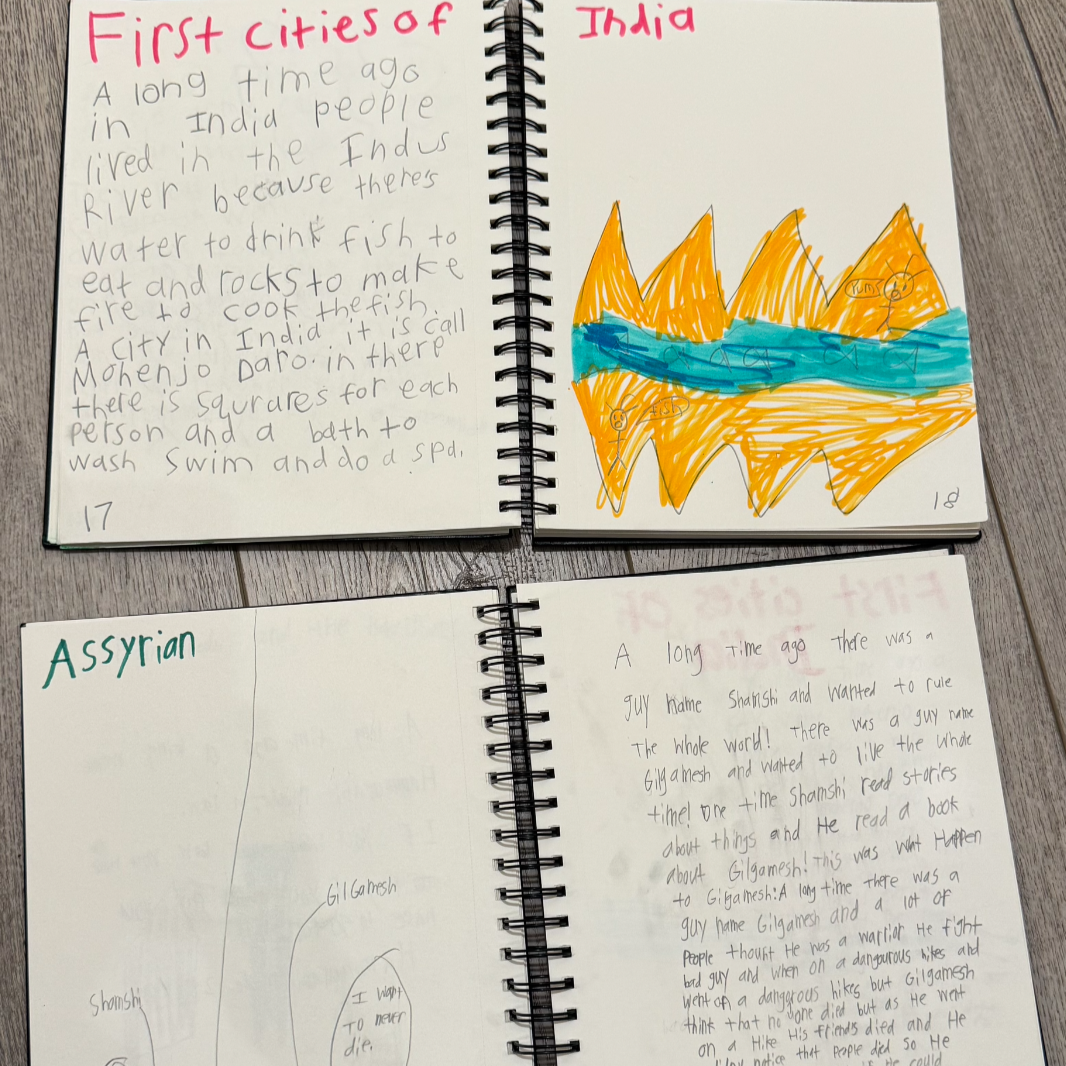 First cities of India
A long time ago
in India people
lived in the Indus
River because there's
water to drink fish to
eat and rocks to make
fire to cook the fish.
A city in India it is call
Mohenjo Daro. in there
there is squrares for each
person and a bath to
wash swim and do a spa.
17
yums
fish
18
Assyrian
GilGamesh
Shamshi
I want
To never
die.
A long time ago there was a
guy name Shamshi and wanted to rule
The whole world! There was a guy name
Gilgamesh and wanted to live the whole
time! one time Shamshi read stories
about things and He read a book
about Gilgamesh! This was what Happen
to Gilgamesh: A long time there was a
guy name Gilgamesh and a lot of
People thought He was a warrior He fight
bad guy and when on a dangourous hikes and
went of a dangrous hikes but Gilgamesh
think that no one died but as He went
on a Hike His friends died and He
notice that People died so He
He could